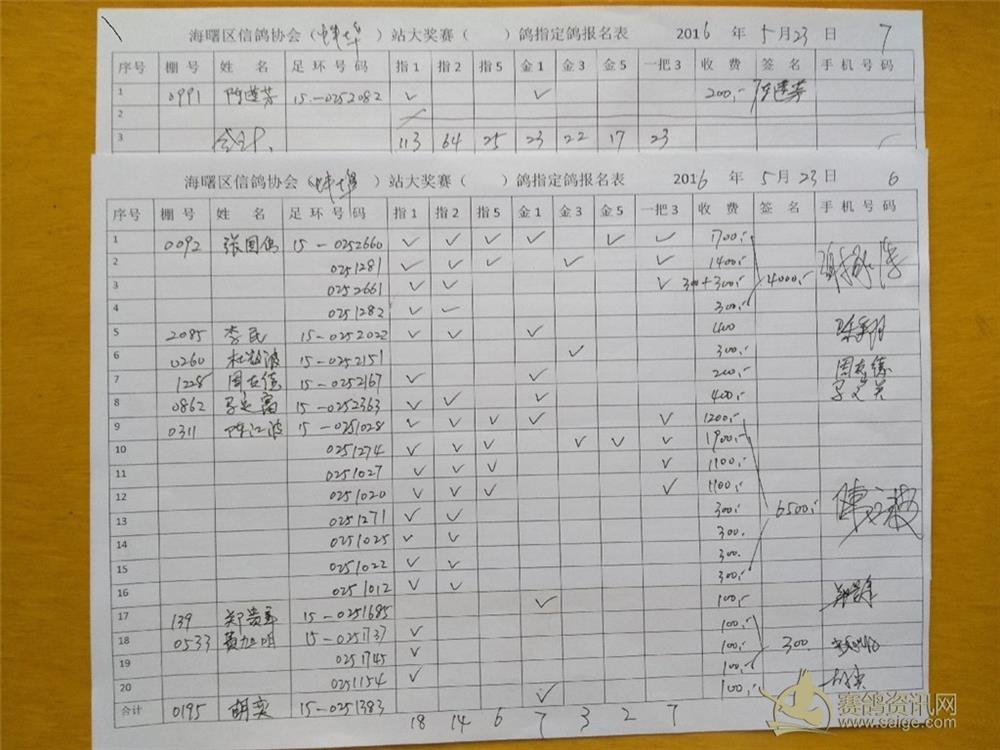 海曙区信鸽协会（蚌埠）站大奖赛（ ）鸽指定鸽报名表 2016 年 5月23日 7
序号 棚号 姓 名 足环号码 指1 指2 指5 金1 金3 金5 一把3 收费 签名 手机号码
1 0991 15-0252082 ✓ ✓ 200,-
2
3 合计 113 64 25 23 22 17 23
海曙区信鸽协会（蚌埠）站大奖赛（ ）鸽指定鸽报名表 2016 年 5月23日 6
序号 棚号 姓 名 足环号码 指1 指2 指5 金1 金3 金5 一把3 收费 签名 手机号码
1 0092 张国伟 15-0252660 ✓ ✓ ✓ ✓ ✓ ✓ 1700,-
2 0251281 ✓ ✓ ✓ ✓ ✓ 1400,-
3 0252661 ✓ ✓ ✓ 300+300,- 4000,-
4 0251282 ✓ ✓ 300,-
5 2085 李民 15-0252022 ✓ ✓ ✓ 400
6 0260 15-0252151 ✓ 300,-
7 1228 周志德 15-0252167 ✓ ✓ 200,- 周志德
8 0862 15-0252363 ✓ ✓ ✓ 400,-
9 0311 陈江波 15-0251028 ✓ ✓ ✓ ✓ ✓ 1200,-
10 0251274 ✓ ✓ ✓ ✓ ✓ ✓ 1900,-
11 0251027 ✓ ✓ ✓ ✓ 1100,-
12 0251020 ✓ ✓ ✓ ✓ 1100,- 6500,-
13 0251271 ✓ ✓ 300,-
14 0251025 ✓ ✓ 300.
15 0251022 ✓ ✓ 300.
16 0251012 ✓ ✓ 300,-
17 139 15-0251685 ✓ 100,-
18 0533 黄旭明 15-0251737 ✓ 100,-
19 0251745 ✓ 100,- 300
20 0251154 ✓ 100,-
合计 0195 胡奕 15-0251383 ✓ 100,-
18 14 6 7 3 2 7
赛鸽资讯网
www.saige.com